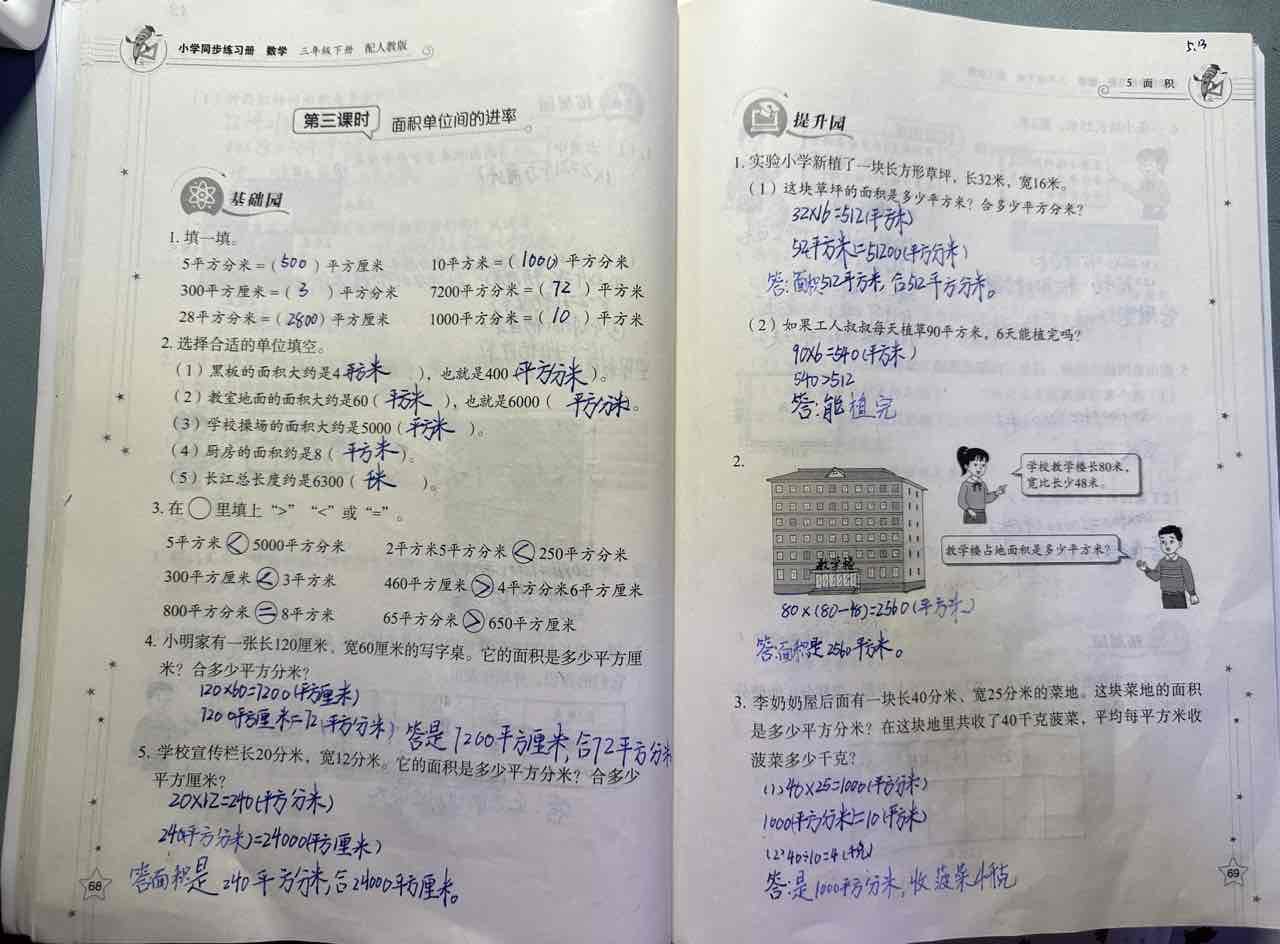 小学同步练习册 数学 三年级下册 配人教版
第三课时 面积单位间的进率
基础园
1. 填一填。
5平方分米=(500)平方厘米 10平方米=(1000)平方分米
300平方厘米=(3)平方分米 7200平方分米=(72)平方米
28平方分米=(2800)平方厘米 1000平方分米=(10)平方米
2. 选择合适的单位填空。
(1)黑板的面积大约是4平方米),也就是400平方分米)。
(2)教室地面的面积大约是60(平方米),也就是6000(平方分米。
(3)学校操场的面积大约是5000(平方米)。
(4)厨房的面积约是8(平方米)。
(5)长江总长度约是6300(千米)。
3. 在○里填上“>”“<”或“=”。
5平方米<5000平方分米 2平方米5平方分米<250平方分米
300平方厘米<3平方米 460平方厘米>4平方分米6平方厘米
800平方分米=8平方米 65平方分米>650平方厘米
4. 小明家有一张长120厘米、宽60厘米的写字桌。它的面积是多少平方厘
米?合多少平方分米?
120×60=7200(平方厘米)
7200平方厘米=72(平方分米)答是7200平方厘米,合72平方分米
5. 学校宣传栏长20分米,宽12分米。它的面积是多少平方分米?合多少
平方厘米?
20×12=240(平方分米)
240(平方分米)=24000(平方厘米)
答面积是240平方分米,合24000平方厘米。
68
5.13
5 面 积
提升园
1. 实验小学新植了一块长方形草坪,长32米,宽16米。
(1)这块草坪的面积是多少平方米?合多少平方分米?
32×16=512(平方米)
512平方米=51200(平方分米)
答:面积512平方米,合512平方分米。
(2)如果工人叔叔每天植草90平方米,6天能植完吗?
90×6=540(平方米)
540>512
答:能植完
2.
学校教学楼长80米,
宽比长少48米。
教学楼占地面积是多少平方米?
教学楼
80×(80-48)=2560(平方米)
答面积是2560平方米。
3. 李奶奶屋后面有一块长40分米、宽25分米的菜地。这块菜地的面积
是多少平方分米?在这块地里共收了40千克菠菜,平均每平方米收
菠菜多少千克?
(1)40×25=1000(平方分米)
1000(平方分米)=10(平方米)
(2)40÷10=4(千克)
答:是1000平方分米,收菠菜4千克
69